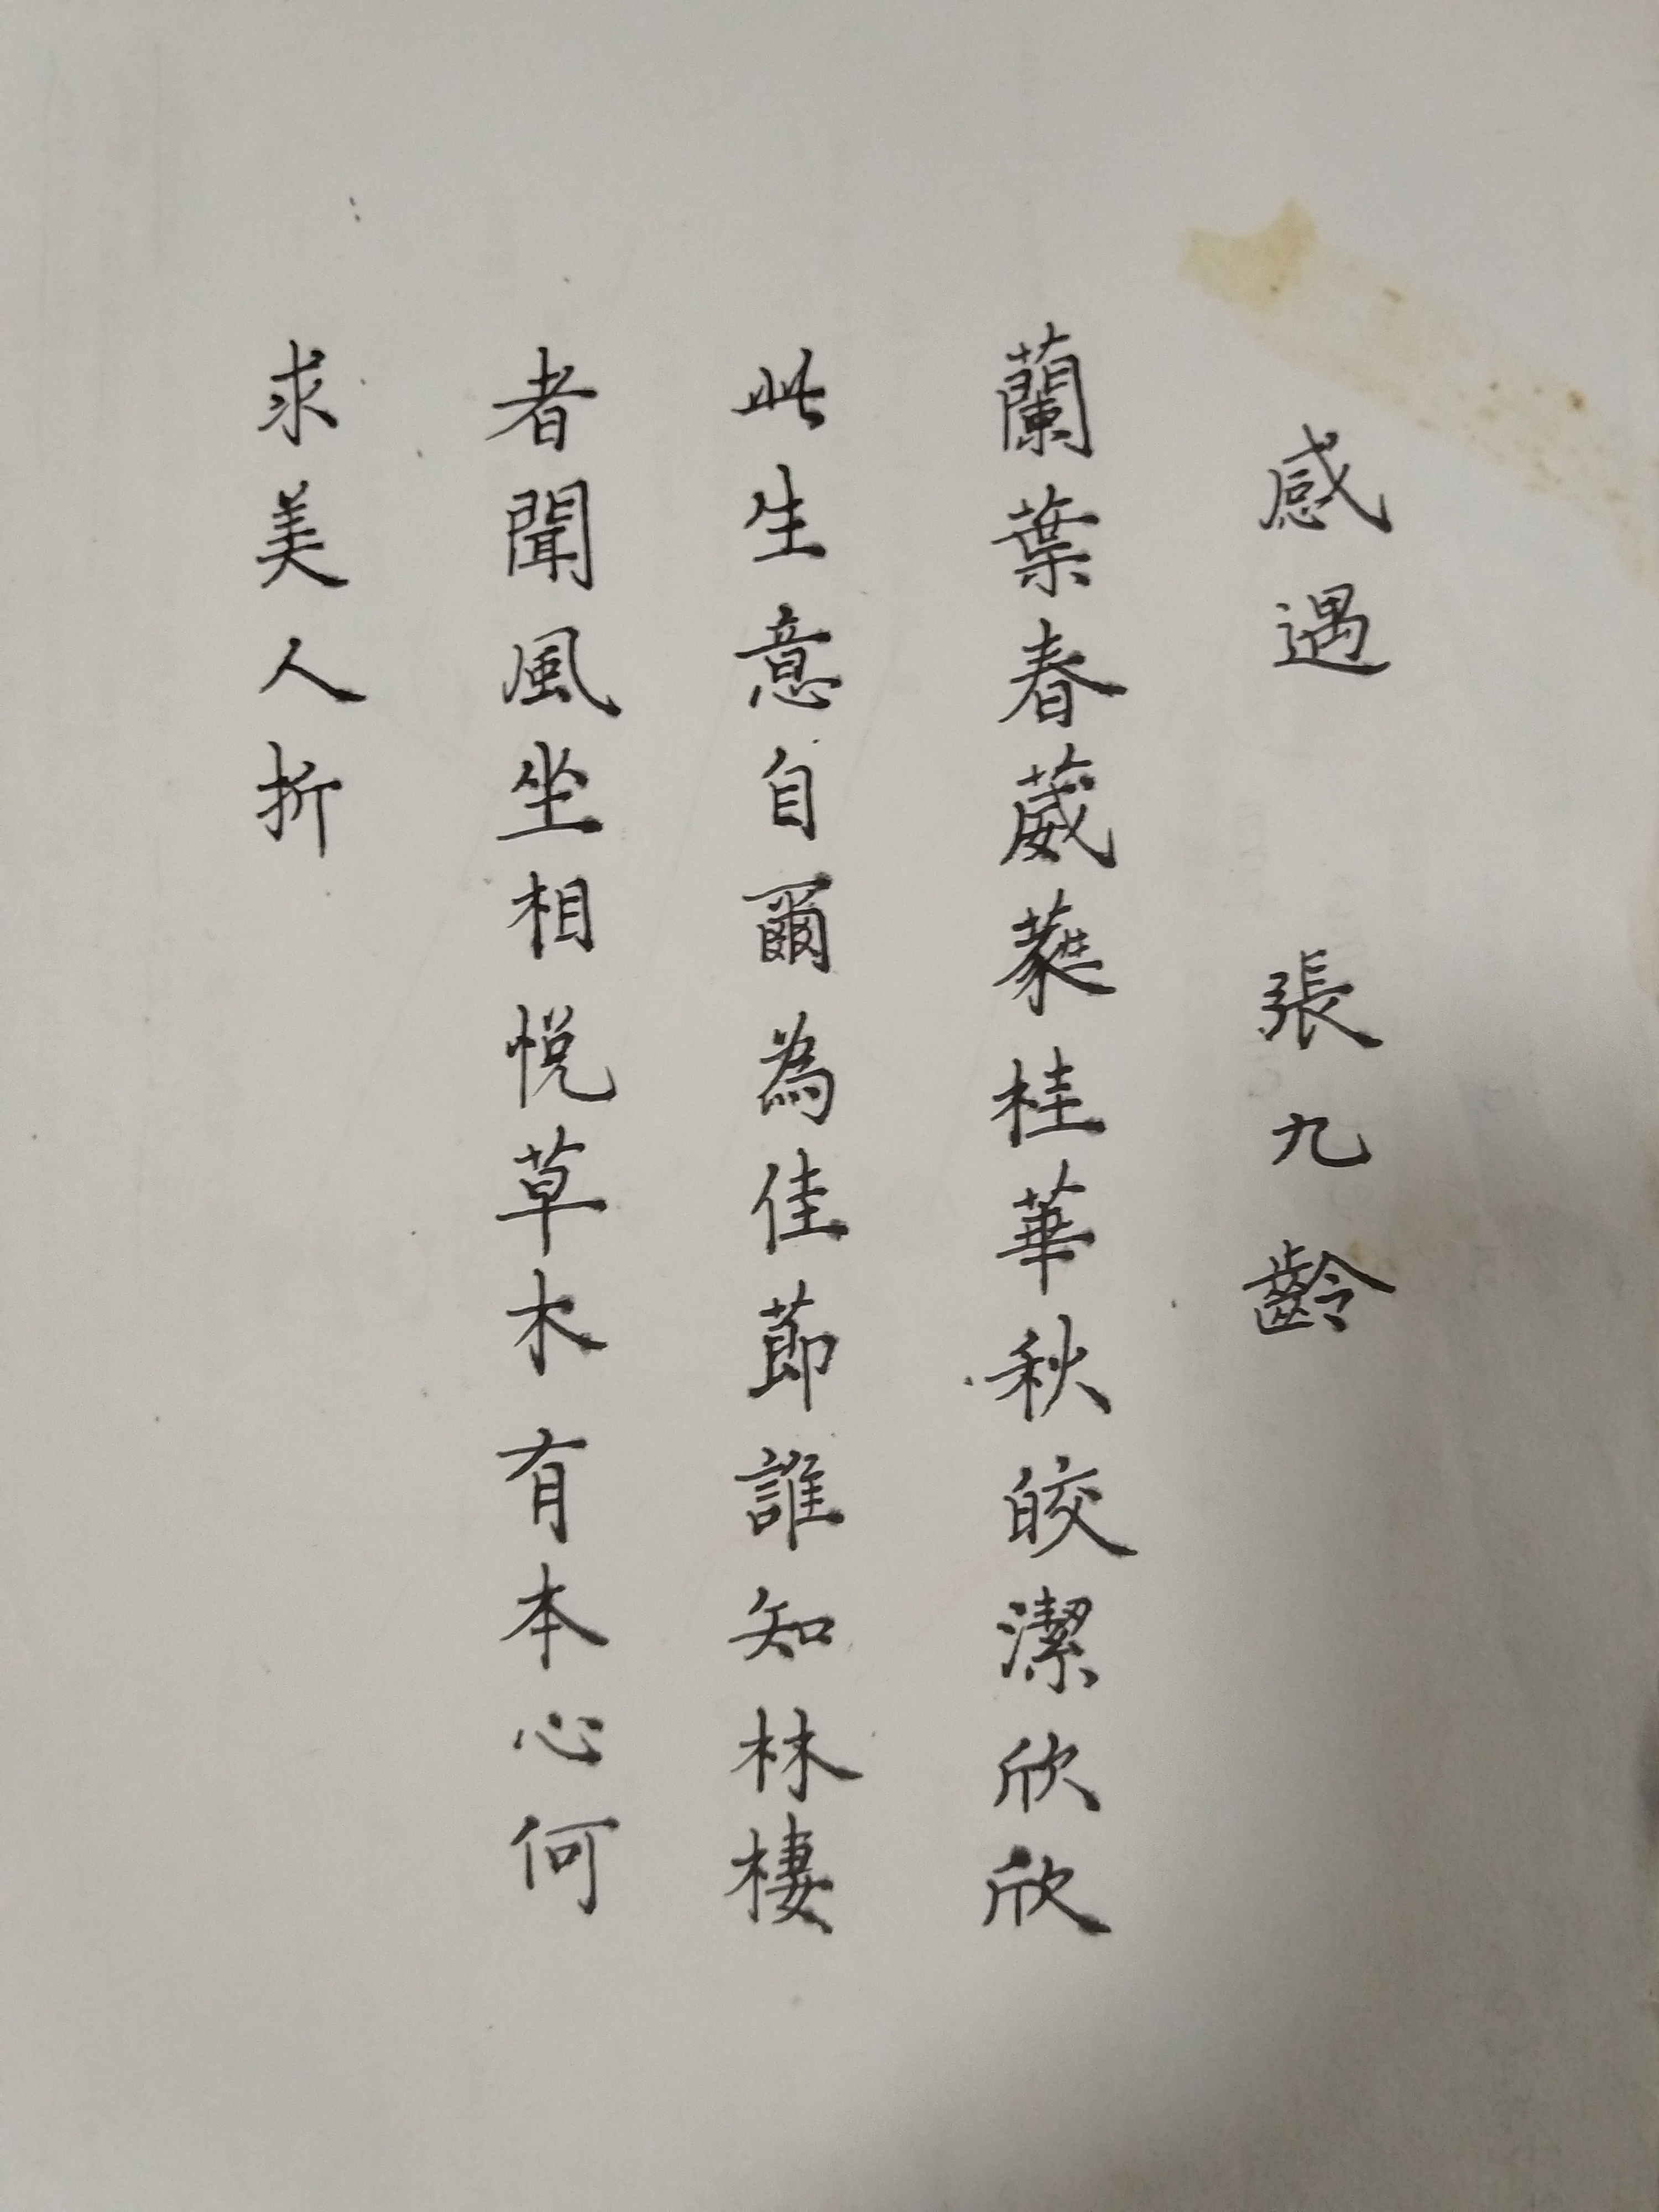 感遇 張九齡
蘭葉春葳蕤桂華秋皎潔欣欣
此生意自爾為佳節誰知林棲
者聞風坐相悅草木有本心何
求美人折